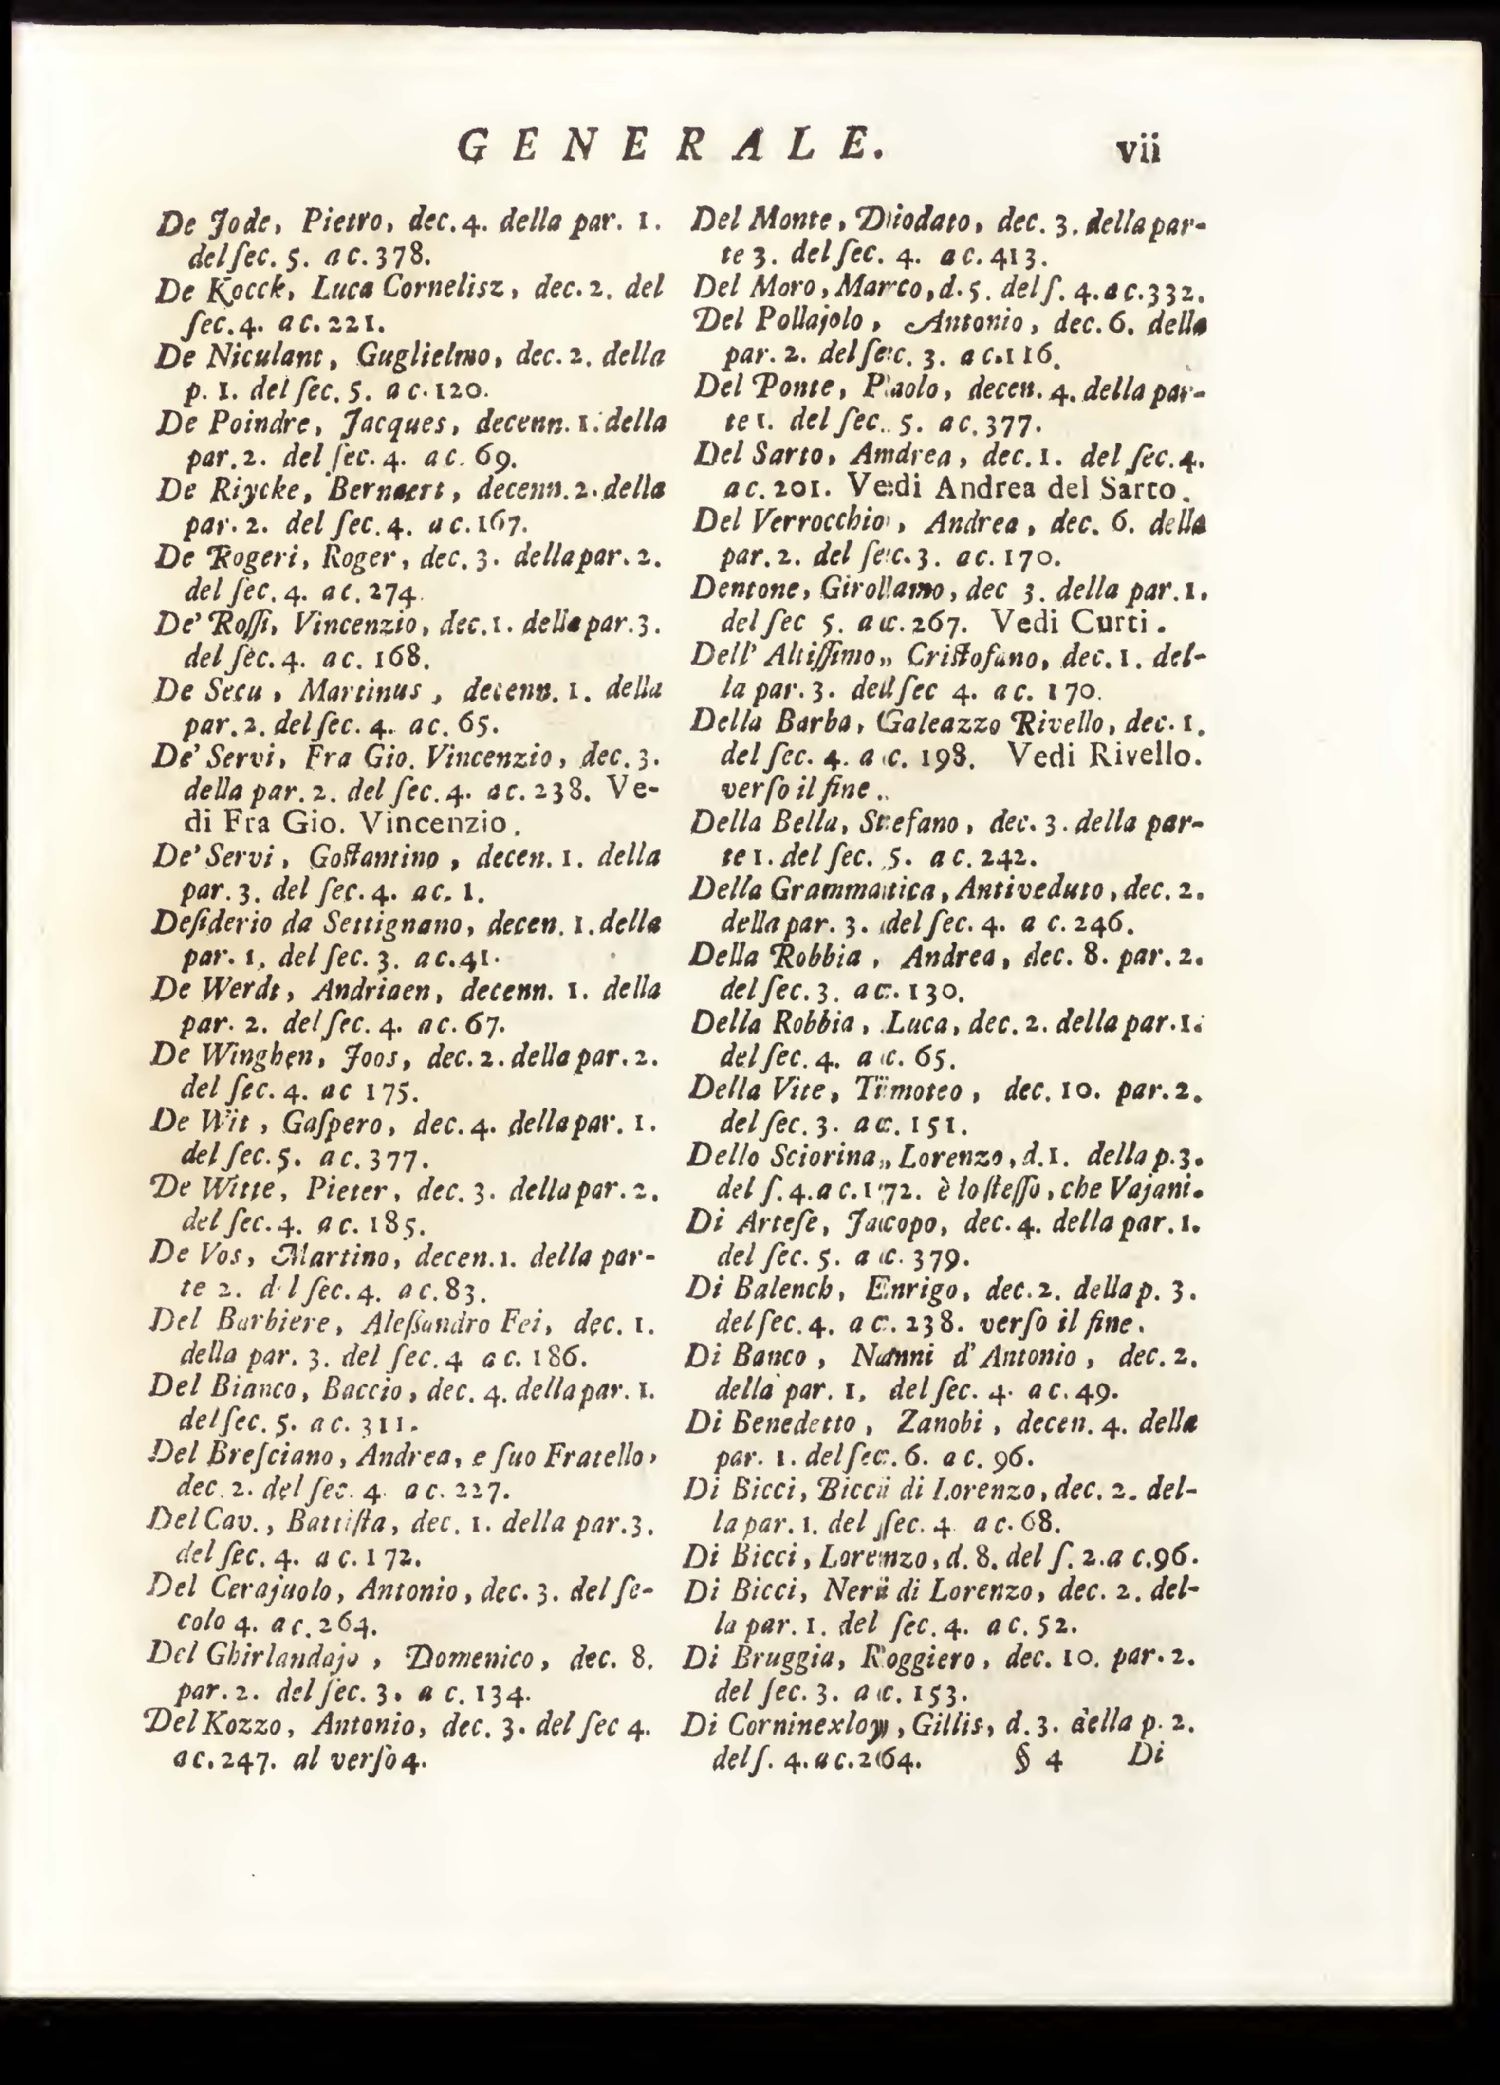 GENERALE. vii
De Jode, Pietro, dec. 4. della par. 1.
del ſec. 5. a c. 378.
De Kocck, Luca Cornelisz, dec. 2. del
ſec. 4. a c. 221.
De Niculant, Guglielmo, dec. 2. della
p. 1. del ſec. 5. a c. 120.
De Poindre, Jacques, decenn. 1. della
par. 2. del ſec. 4. a c. 69.
De Riycke, Bernaert, decenn. 2. della
par. 2. del ſec. 4. a c. 167.
De Rogeri, Roger, dec. 3. della par. 2.
del ſec. 4. a c. 274.
De' Roſſi, Vincenzio, dec. 1. della par. 3.
del ſec. 4. a c. 168.
De Secu, Martinus, decenn. 1. della
par. 2. del ſec. 4. a c. 65.
De' Servi, Fra Gio. Vincenzio, dec. 3.
della par. 2. del ſec. 4. a c. 238. Ve-
di Fra Gio. Vincenzio.
De' Servi, Goſtantino, decen. 1. della
par. 3. del ſec. 4. a c. 1.
Deſiderio da Settignano, decen. 1. della
par. 1. del ſec. 3. a c. 41.
De Werdt, Andriaen, decenn. 1. della
par. 2. del ſec. 4. a c. 67.
De Winghen, Joos, dec. 2. della par. 2.
del ſec. 4. a c 175.
De Wit, Gaſpero, dec. 4. della par. 1.
del ſec. 5. a c. 377.
De Witte, Pieter, dec. 3. della par. 2.
del ſec. 4. a c. 185.
De Vos, Martino, decen. 1. della par-
te 2. del ſec. 4. a c. 83.
Del Barbiere, Aleſſandro Fei, dec. 1.
della par. 3. del ſec. 4 a c. 186.
Del Bianco, Baccio, dec. 4. della par. 1.
del ſec. 5. a c. 311.
Del Breſciano, Andrea, e ſuo Fratello,
dec. 2. del ſec. 4. a c. 227.
Del Cav., Battiſta, dec. 1. della par. 3.
del ſec. 4. a c. 172.
Del Cerajuolo, Antonio, dec. 3. del ſe-
colo 4. a c. 264.
Del Ghirlandajo, Domenico, dec. 8.
par. 2. del ſec. 3. a c. 134.
Del Kozzo, Antonio, dec. 3. del ſec 4.
a c. 247. al verſo 4.
Del Monte, Diodato, dec. 3. della par-
te 3. del ſec. 4. a c. 413.
Del Moro, Marco, d. 5. del ſ. 4. a c. 332.
Del Pollajolo, Antonio, dec. 6. della
par. 2. del ſec. 3. a c. 116.
Del Ponte, Paolo, decen. 4. della par-
te 1. del ſec. 5. a c. 377.
Del Sarto, Andrea, dec. 1. del ſec. 4.
a c. 201. Vedi Andrea del Sarto.
Del Verrocchio, Andrea, dec. 6. della
par. 2. del ſec. 3. a c. 170.
Dentone, Girolamo, dec 3. della par. 1.
del ſec 5. a c. 267. Vedi Curti.
Dell' Altiſſimo, Criſtofano, dec. 1. del-
la par. 3. del ſec 4. a c. 170.
Della Barba, Galeazzo Rivello, dec. 1.
del ſec. 4. a c. 198. Vedi Rivello.
verſo il fine.
Della Bella, Stefano, dec. 3. della par-
te 1. del ſec. 5. a c. 242.
Della Grammatica, Antiveduto, dec. 2.
della par. 3. del ſec. 4. a c. 246.
Della Robbia, Andrea, dec. 8. par. 2.
del ſec. 3. a c. 130.
Della Robbia, Luca, dec. 2. della par. 1.
del ſec. 4. a c. 65.
Della Vite, Timoteo, dec. 10. par. 2.
del ſec. 3. a c. 151.
Dello Sciorina, Lorenzo, d. 1. della p. 3.
del ſ. 4. a c. 172. è lo ſteſſo, che Vajani.
Di Arteſe, Jacopo, dec. 4. della par. 1.
del ſec. 5. a c. 379.
Di Balench, Enrigo, dec. 2. della p. 3.
del ſec. 4. a c. 238. verſo il fine.
Di Banco, Nanni d'Antonio, dec. 2.
della par. 1. del ſec. 4. a c. 49.
Di Benedetto, Zanobi, decen. 4. della
par. 1. del ſec. 6. a c. 96.
Di Bicci, Bicci di Lorenzo, dec. 2. del-
la par. 1. del ſec. 4. a c. 68.
Di Bicci, Lorenzo, d. 8. del ſ. 2. a c. 96.
Di Bicci, Neri di Lorenzo, dec. 2. del-
la par. 1. del ſec. 4. a c. 52.
Di Bruggia, Roggiero, dec. 10. par. 2.
del ſec. 3. a c. 153.
Di Corninexloy, Gillis, d. 3. della p. 2.
del ſ. 4. a c. 264. § 4 Di